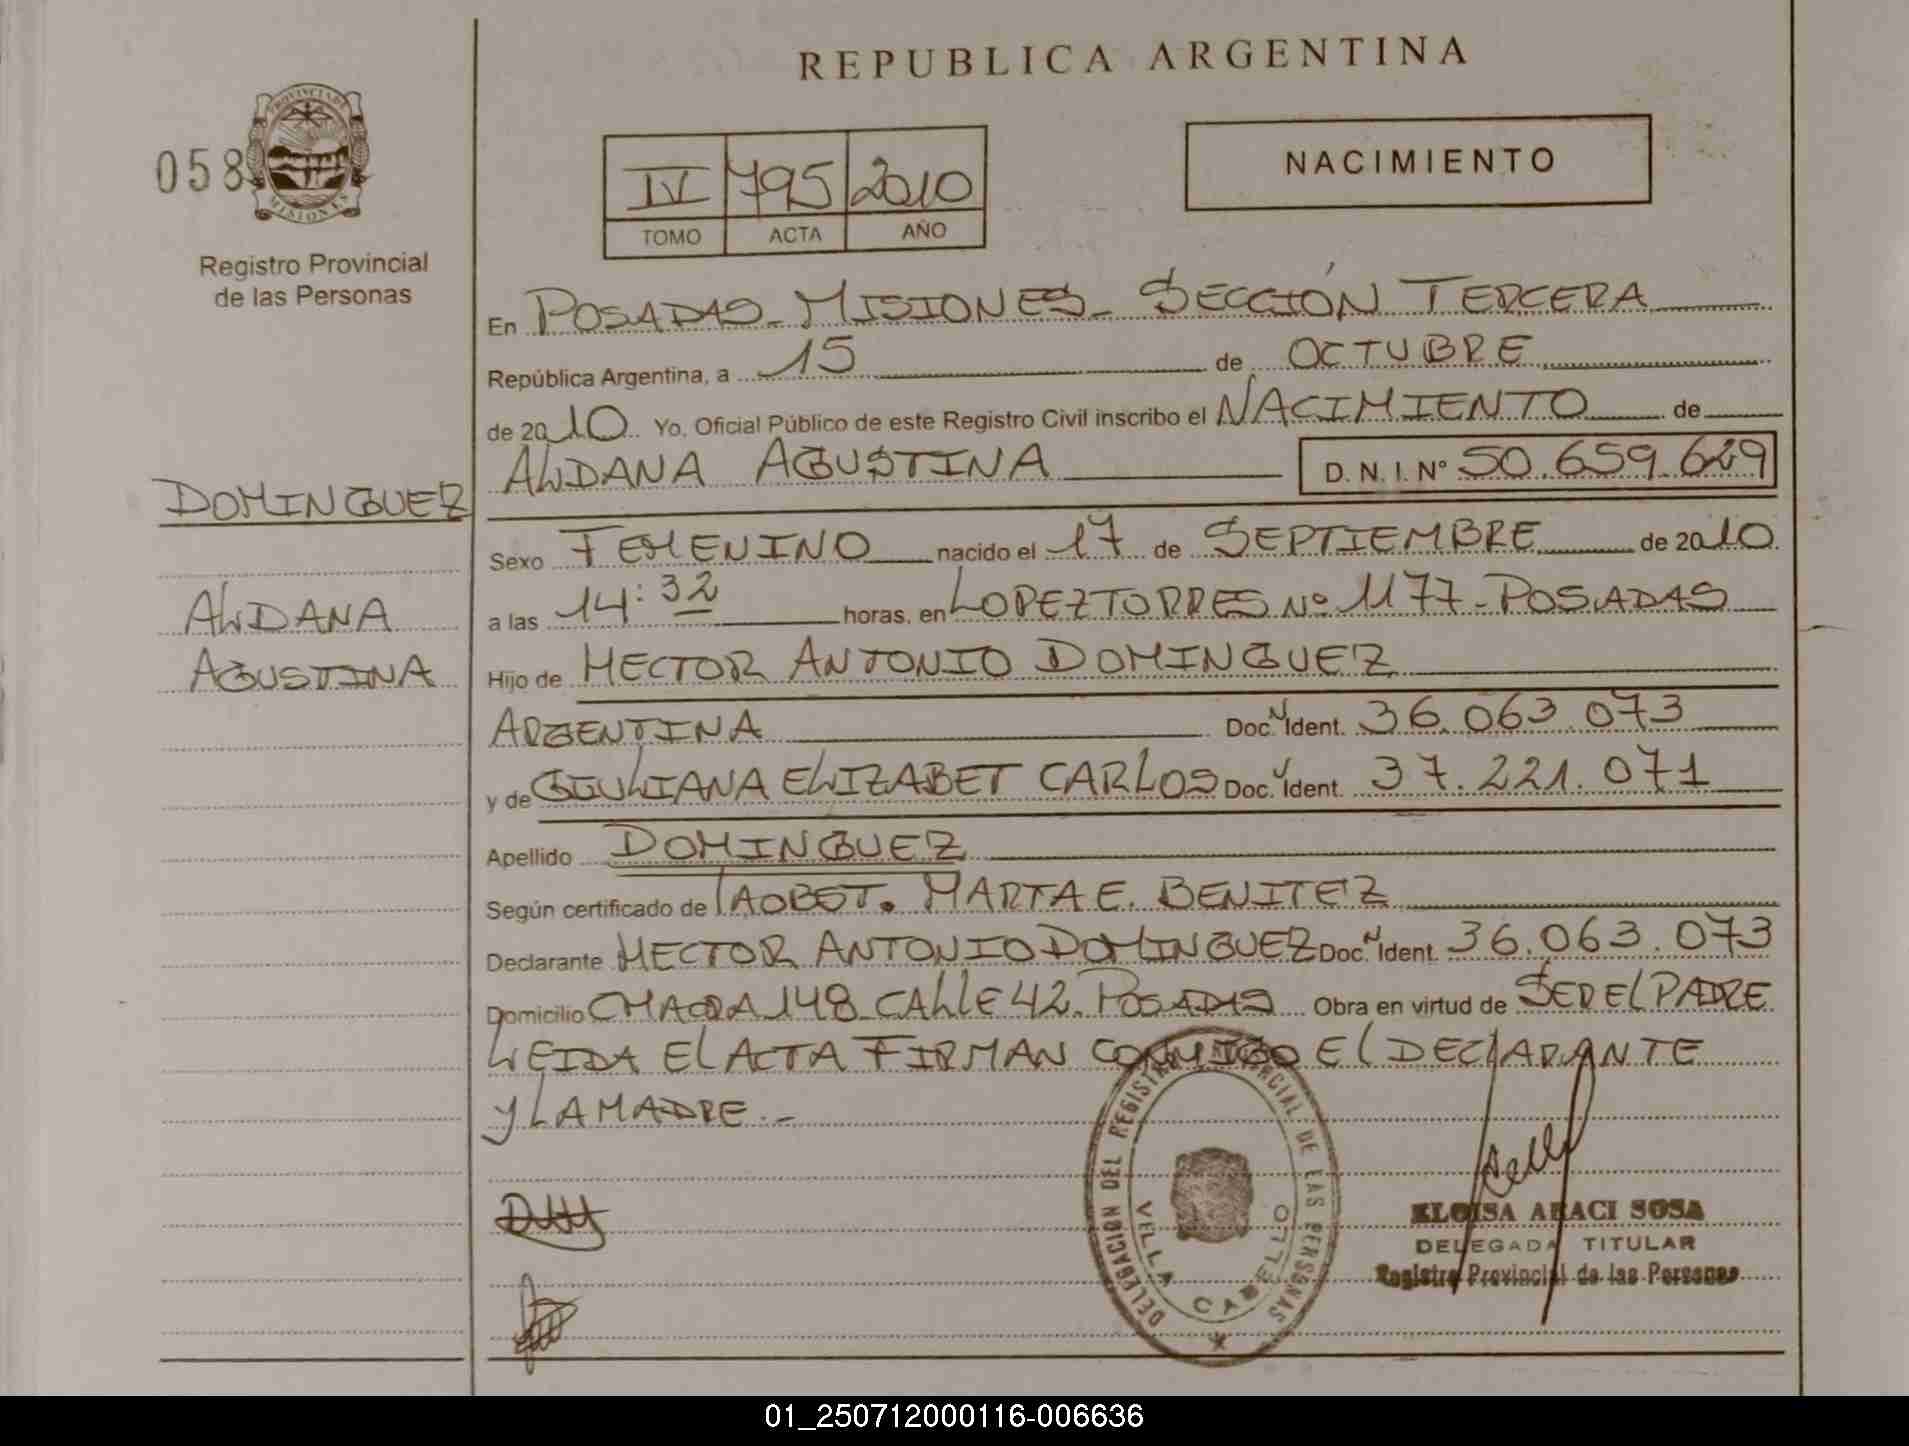 REPUBLICA ARGENTINA
058
PROVINCIA DE
MISIONES
Registro Provincial
de las Personas
IV 795 2010
TOMO ACTA AÑO
NACIMIENTO
En POSADAS - MISIONES - SECCIÓN TERCERA
República Argentina, a 15 de OCTUBRE
de 2010 Yo, Oficial Público de este Registro Civil inscribo el NACIMIENTO de
ALDANA AGUSTINA D.N.I.N° 50.659.629
DOMINGUEZ
ALDANA
AGUSTINA
Sexo FEMENINO nacido el 17 de SEPTIEMBRE de 2010
a las 14:32 horas, en LOPEZ TORRES Nº 1177 - POSADAS
Hijo de HECTOR ANTONIO DOMINGUEZ
ARGENTINA Doc. N Ident. 36.063.073
y de GIULIANA ELIZABET CARLOS Doc. N Ident. 37.221.071
Apellido DOMINGUEZ
Según certificado de LA OBST. MARTA E. BENITEZ
Declarante HECTOR ANTONIO DOMINGUEZ Doc. N Ident. 36.063.073
Domicilio CHACRA 148 - CALLE 42. POSADAS Obra en virtud de SER EL PADRE
LEIDA EL ACTA FIRMAN CONMIGO EL DECLARANTE
Y LA MADRE.-
DELEGACION DEL REGISTRO PROVINCIAL DE LAS PERSONAS
VILLA CABELLO
ELOISA ARACI SOSA
DELEGADA TITULAR
Registro Provincial de las Personas
01_250712000116-006636